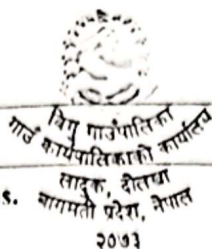 बिगु गाउँपालिका
गाउँ कार्यपालिकाको कार्यालय
लादुक, दोलखा
s. बागमती प्रदेश, नेपाल
२०७३